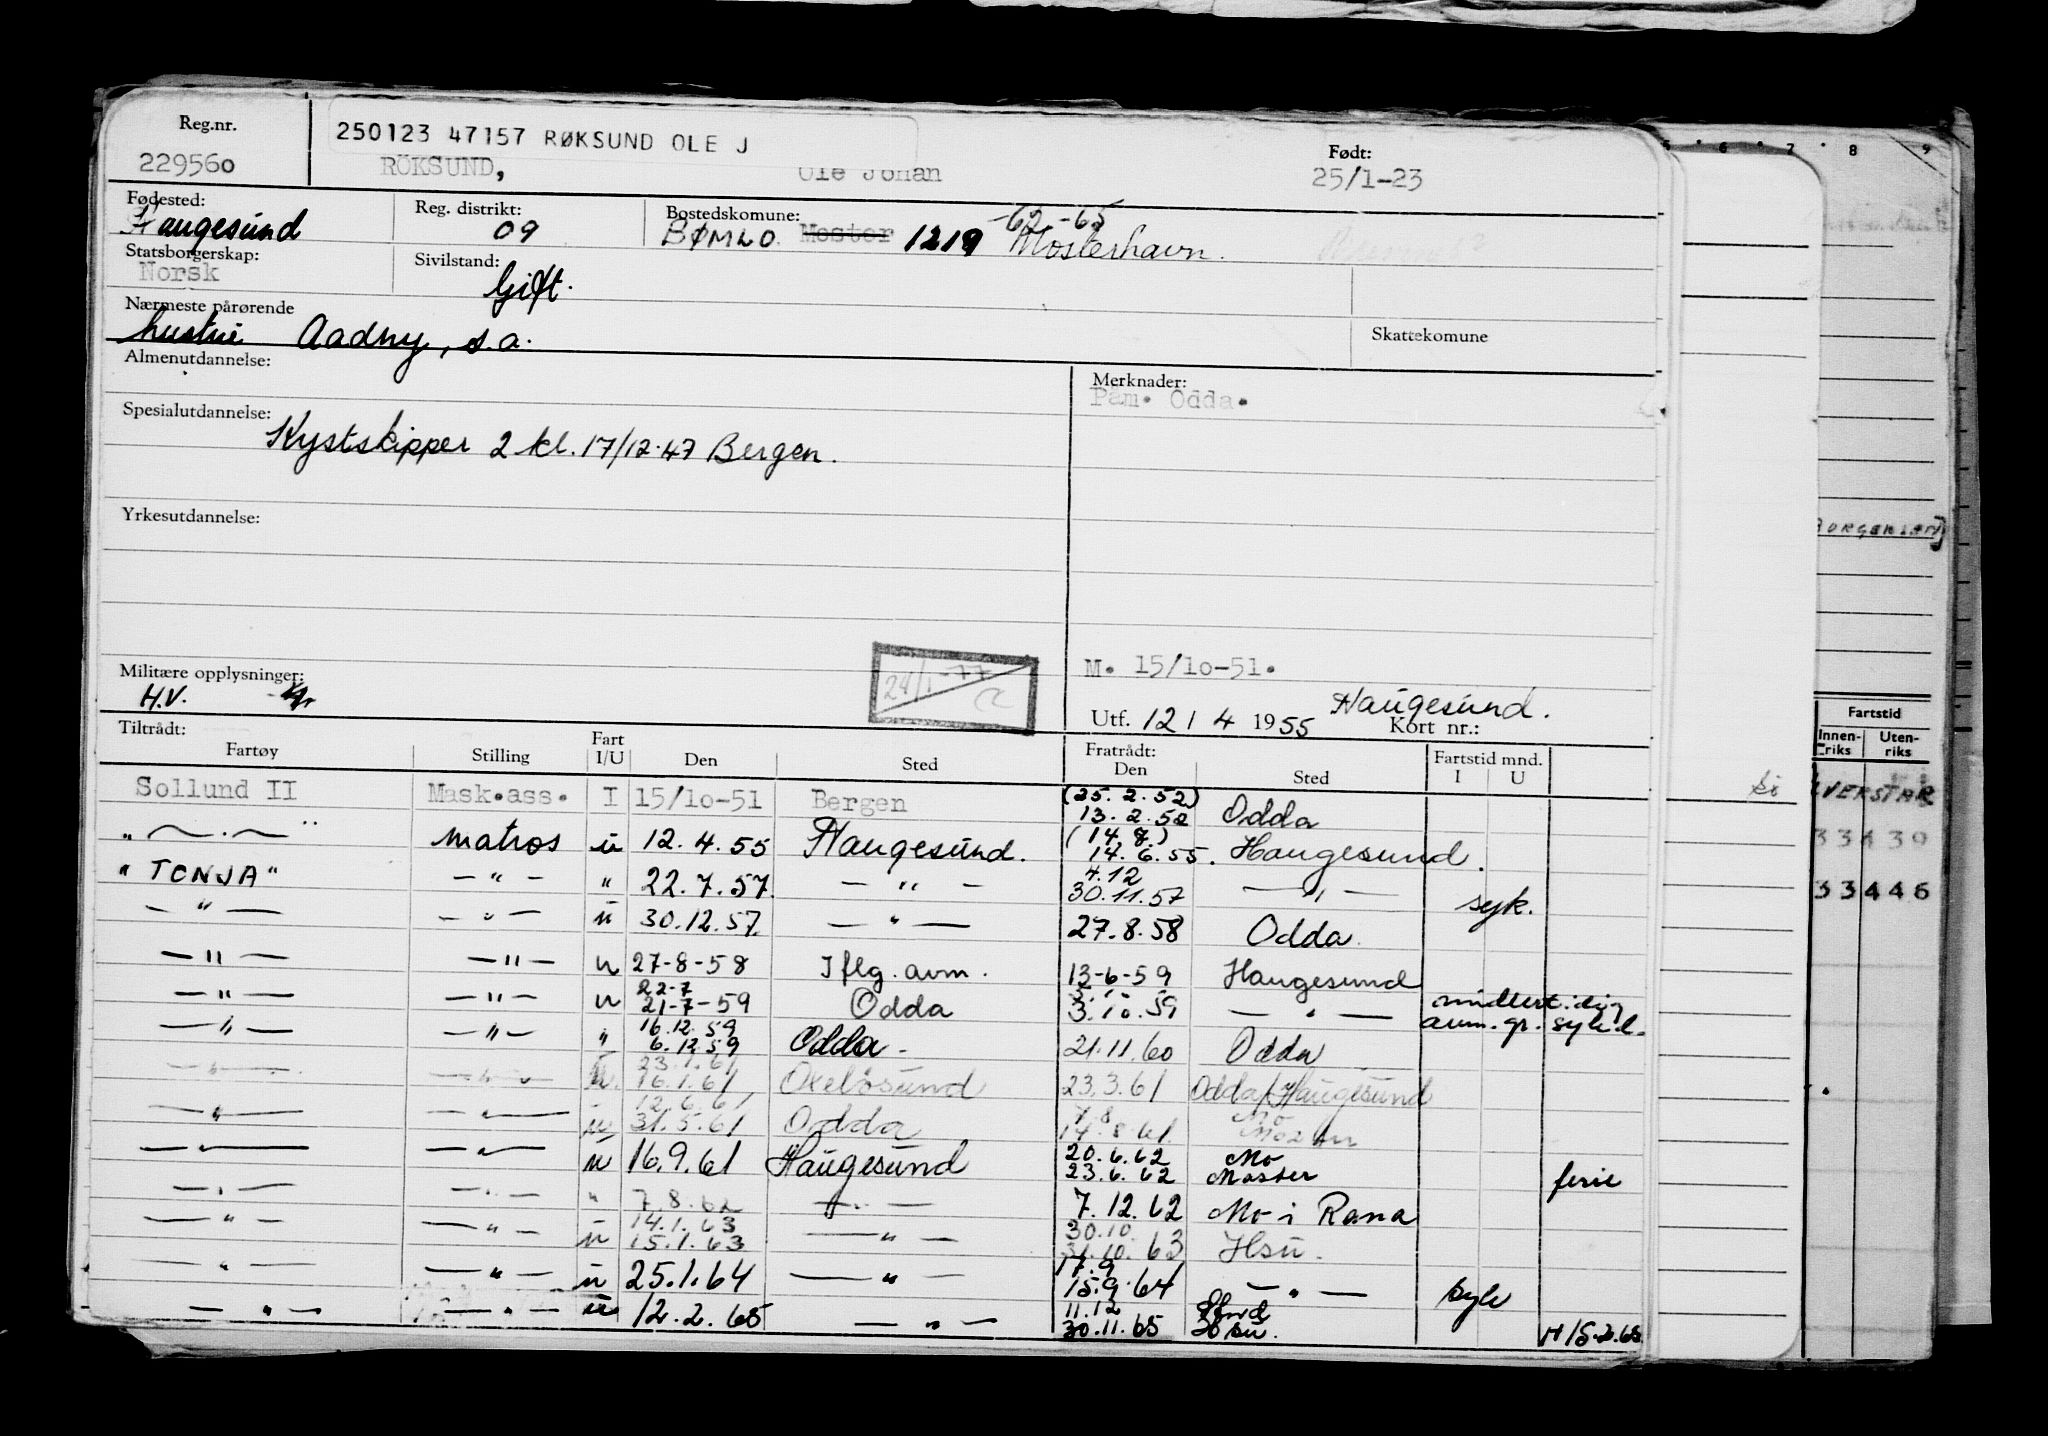 Reg.nr.
229560
250123 47157 RØKSUND OLE J
RÖKSUND, Ole Johan
Født:
25/1-23
Fødested:
Haugesund
Reg. distrikt:
09
Bostedskomune:
BØMLO Moster 1219 Mosterhavn.
-62 -65
Statsborgerskap:
Norsk
Sivilstand:
Gift.
Nærmeste pårørende
hustru Aadny, s.a.
Skattekomune
Almenutdannelse:
Merknader:
Påm. Odda.
Spesialutdannelse:
Kystskipper 2 kl. 17/12-47 Bergen.
Yrkesutdannelse:
Militære opplysninger:
H.V.
24/1-77
M. 15/10-51.
Haugesund.
Utf. 12 / 4 1955 Kort nr.:
Tiltrådt:
Fartøy Stilling Fart I/U Den Sted Fratrådt: Den Sted Fartstid mnd. I U
Sollund II Mask.ass. I 15/10-51 Bergen (25.2.52) 13.2.52 Odda
" — . — " matros u 12.4.55 Haugesund. (14.8.) 14.6.55. Haugesund.
" TONJA " — " — " 22.7.57. — " — 4.12 30.11.57 — " — syk.
— " — — " — u 30.12.57. — " — 27.8.58 Odda.
— " — — " — u 27-8-58 I flg. avm. 13-6-59 Haugesund
— " — — " — u 22-7 21-7-59 Odda 3.10.59 — " — midlertidig avm. gr. syk.
— " — — " — " 16.12.59 6.12.59 Odda. 21.11.60 Odda
— " — — " — u. 23.1.61 16.1.61 Oxelösund 23.3.61 Odda/Haugesund
— " — — " — u 12.6.61 31.5.61 Odda 7.8 14.8.61. Mo
— " — — " — u 16.9.61 Haugesund 20.6.62 23.6.62 Mo Moster ferie
— " — — " — " 7.8.62 — " — 7.12.62 Mo i Rana
— " — — " — u 14.1.63 15.1.63 — " — 30.10. 31.10.63 Hsu.
— " — — " — u 25.1.64 — " — 17.9 15.9.64 — " — syk
— " — — " — u 12.2.65 — " — 11.12 30.11.65 Hsu. H 15.2.65
5 6 7 8 9
BORGERSEN]
Fartstid
Innenriks Utenriks
33439
33446